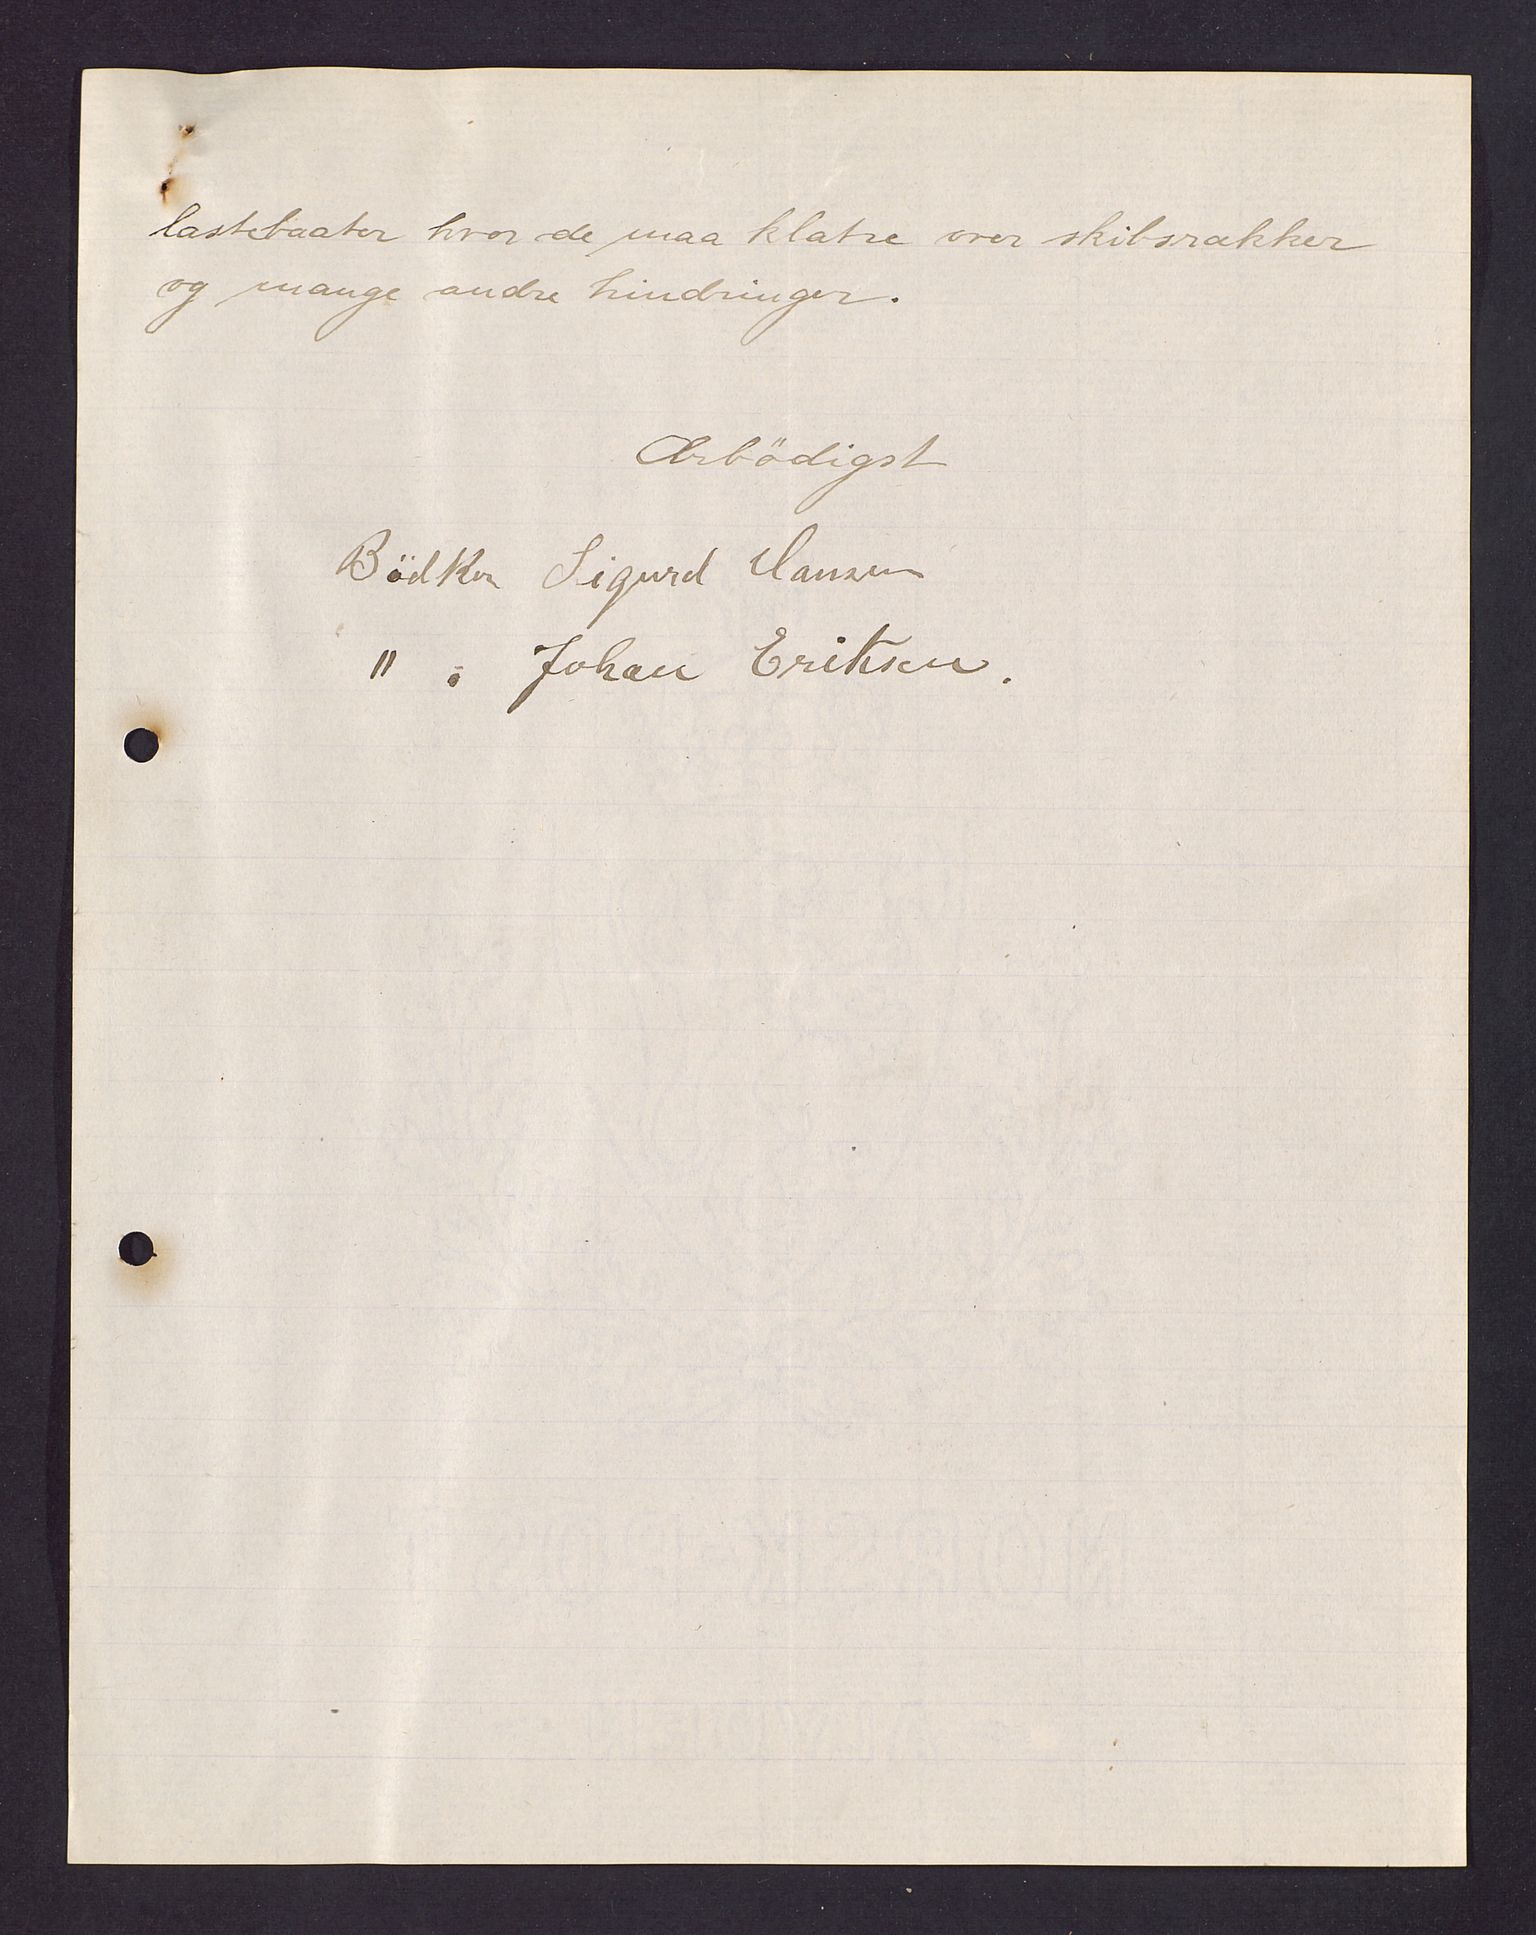 lastebaater hvor de maa klatre over skibsrakker
og mange andre hindringer.
Ærbödigst
Bödker Sigurd Hansen
" . Johan Eriksen.
NORSK-POST